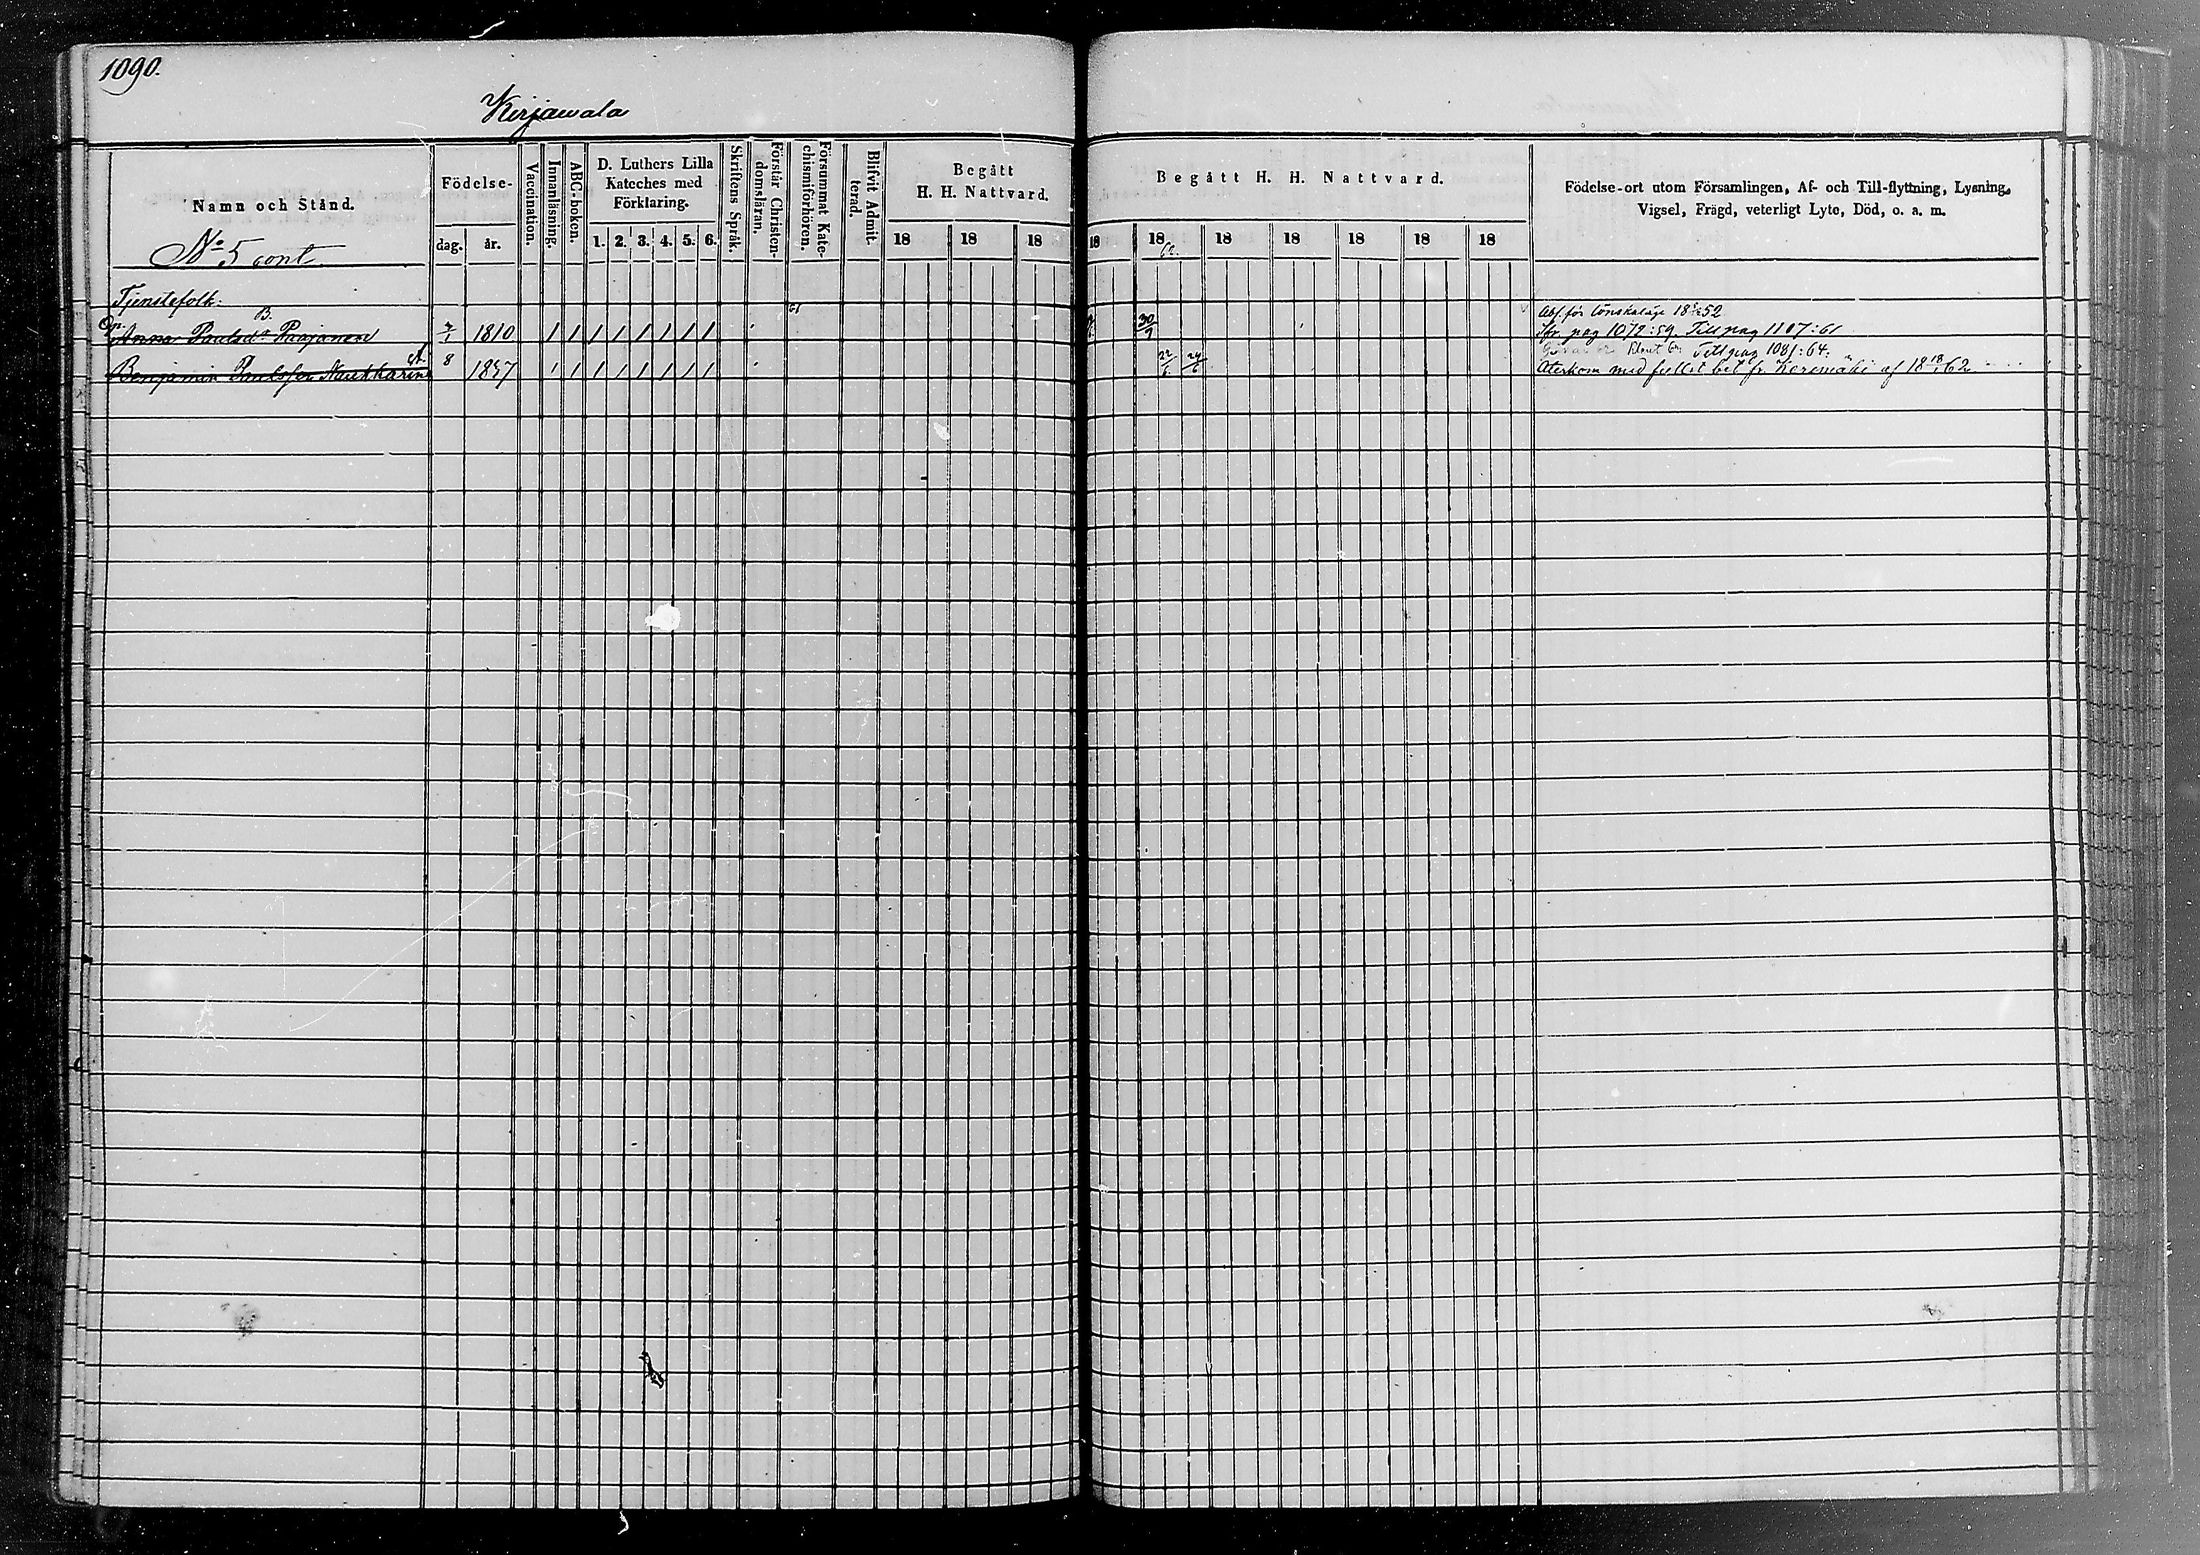 1090.
Kirjawala
Namn och Stånd.
No 5 cont.
Födelse-
dag. år.
Vaccination.
Innanläsning.
ABC-boken.
D. Luthers Lilla
Kateches med
Förklaring.
1. 2. 3. 4. 5. 6.
Skriftens Språk.
Förstår Christen-
domsläran.
Försummat Kate-
chismiförhören.
Blifvit Admit-
terad.
Begått
H. H. Nattvard.
18 18 18
Begått H. H. Nattvard.
18 18 62. 18 18 18 18 18
Födelse-ort utom Församlingen, Af- och Till-flyttning, Lysning,
Vigsel, Frägd, veterligt Lyte, Död, o. a. m.
Tjenstefolk:
B. 61 Abs. för lönskaläge 52
Anna Paulsd:r Paajanen 1810 1 1 1 1 1 1 1 1 30/9 pag 1072:59. Till pag 1107:61
Till pag 1081:64.
Benjamin Paulsson Naukkarinen 8 1837 1 1 1 1 1 1 1 1 22/6 24/6 Återkom med bet fr. Kerimäki af 18 18/1 62